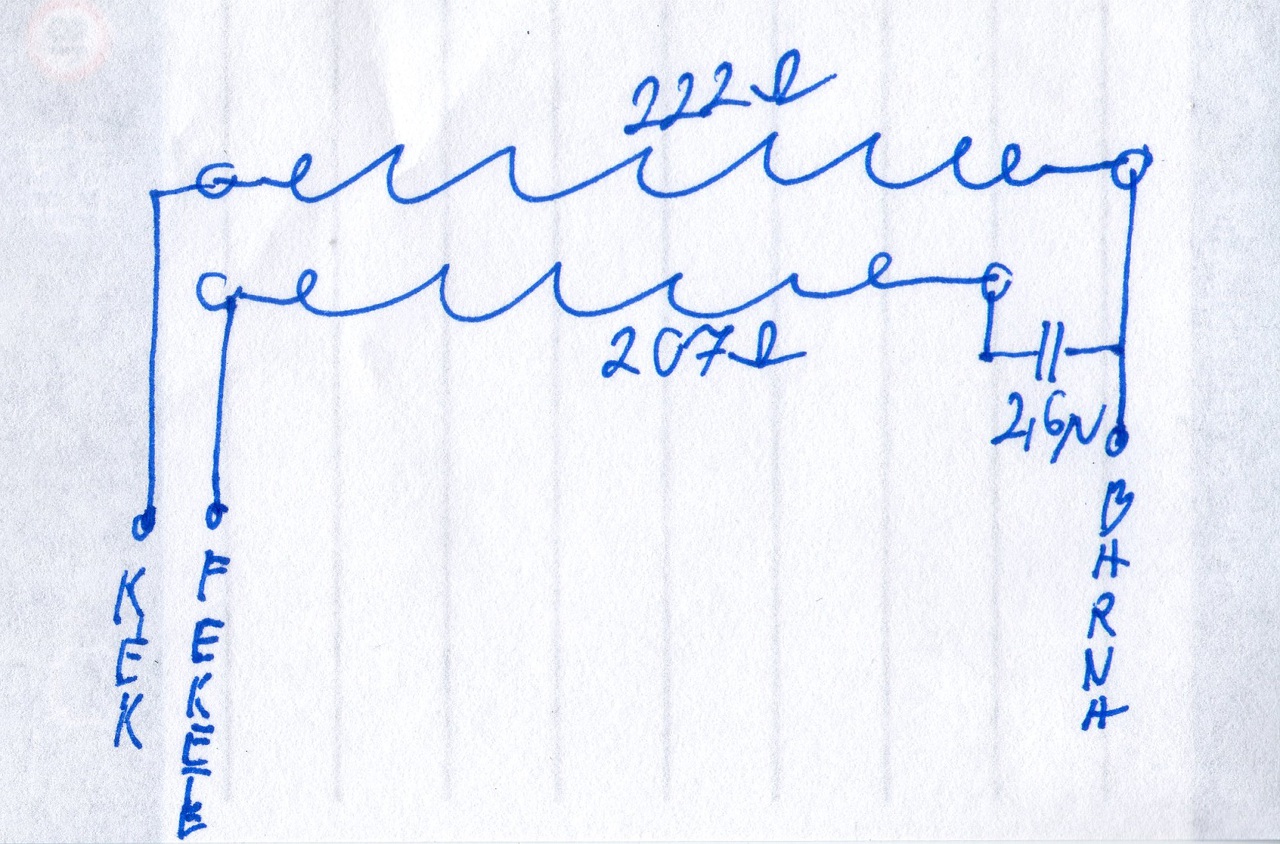 222Ω
207Ω
2,6µ
KEK
FEKETE
BARNA